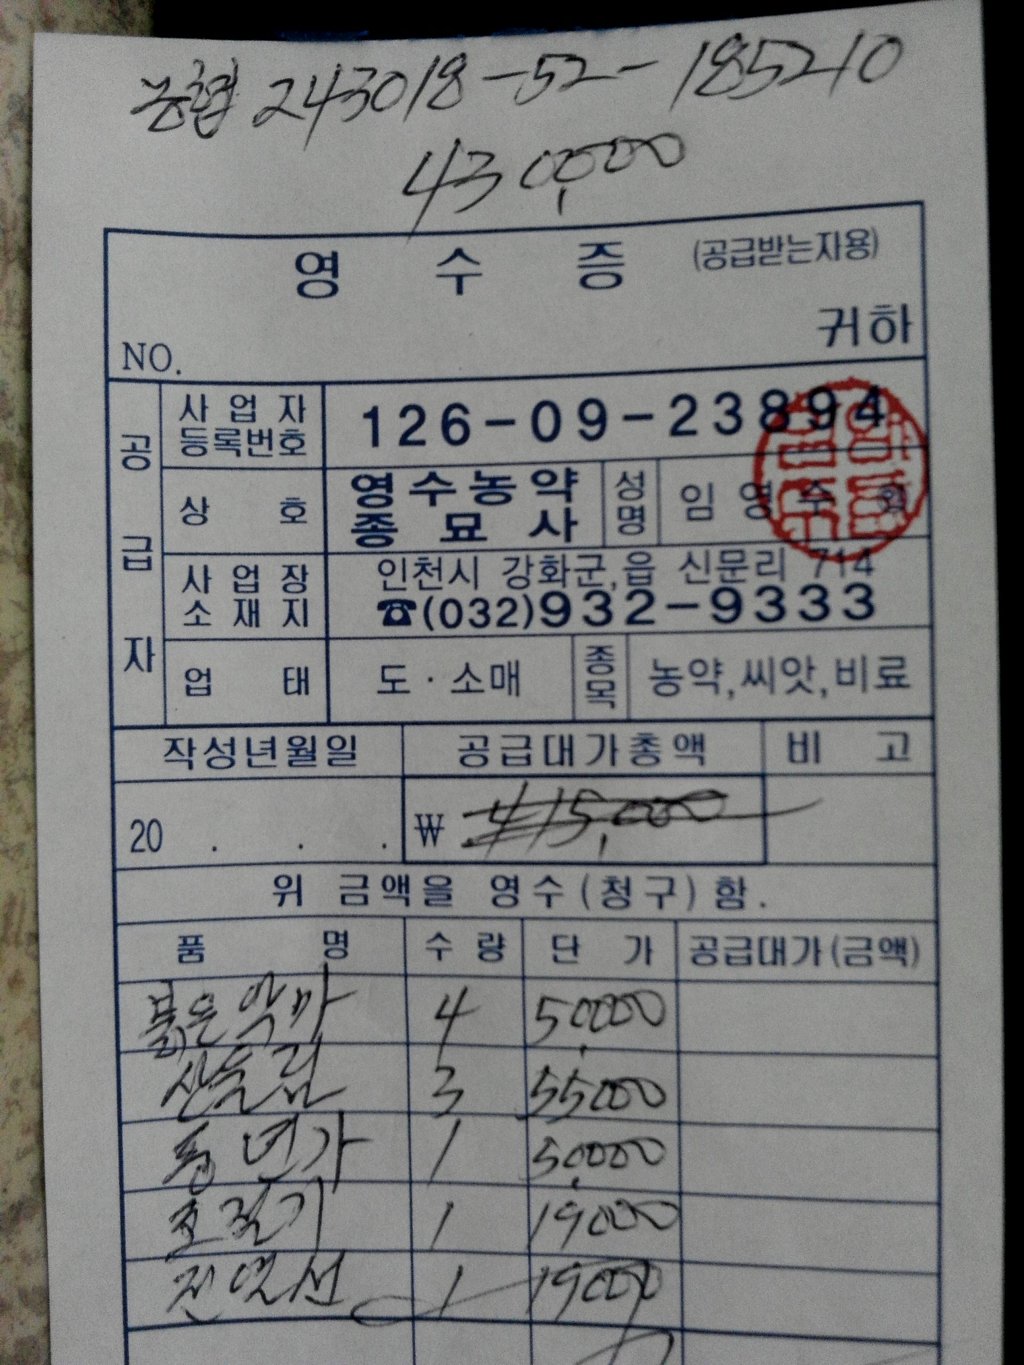 농협 243018-52-185210
430,000
영 수 증 (공급받는자용)
귀하
NO.
공급자
사업자등록번호 126-09-23894
상 호 영수농약종묘사 성명 임영수
사업장소재지 인천시 강화군,읍 신문리 714
☎(032)932-9333
업 태 도·소매 종목 농약,씨앗,비료
작성년월일 공급대가총액 비 고
20 . . . ₩ 415,000
위 금액을 영수(청구)함.
품 명 수 량 단 가 공급대가(금액)
붉은악마 4 50,000
산들림 3 55000
풍년가 1 50,000
1 19000
1 19000